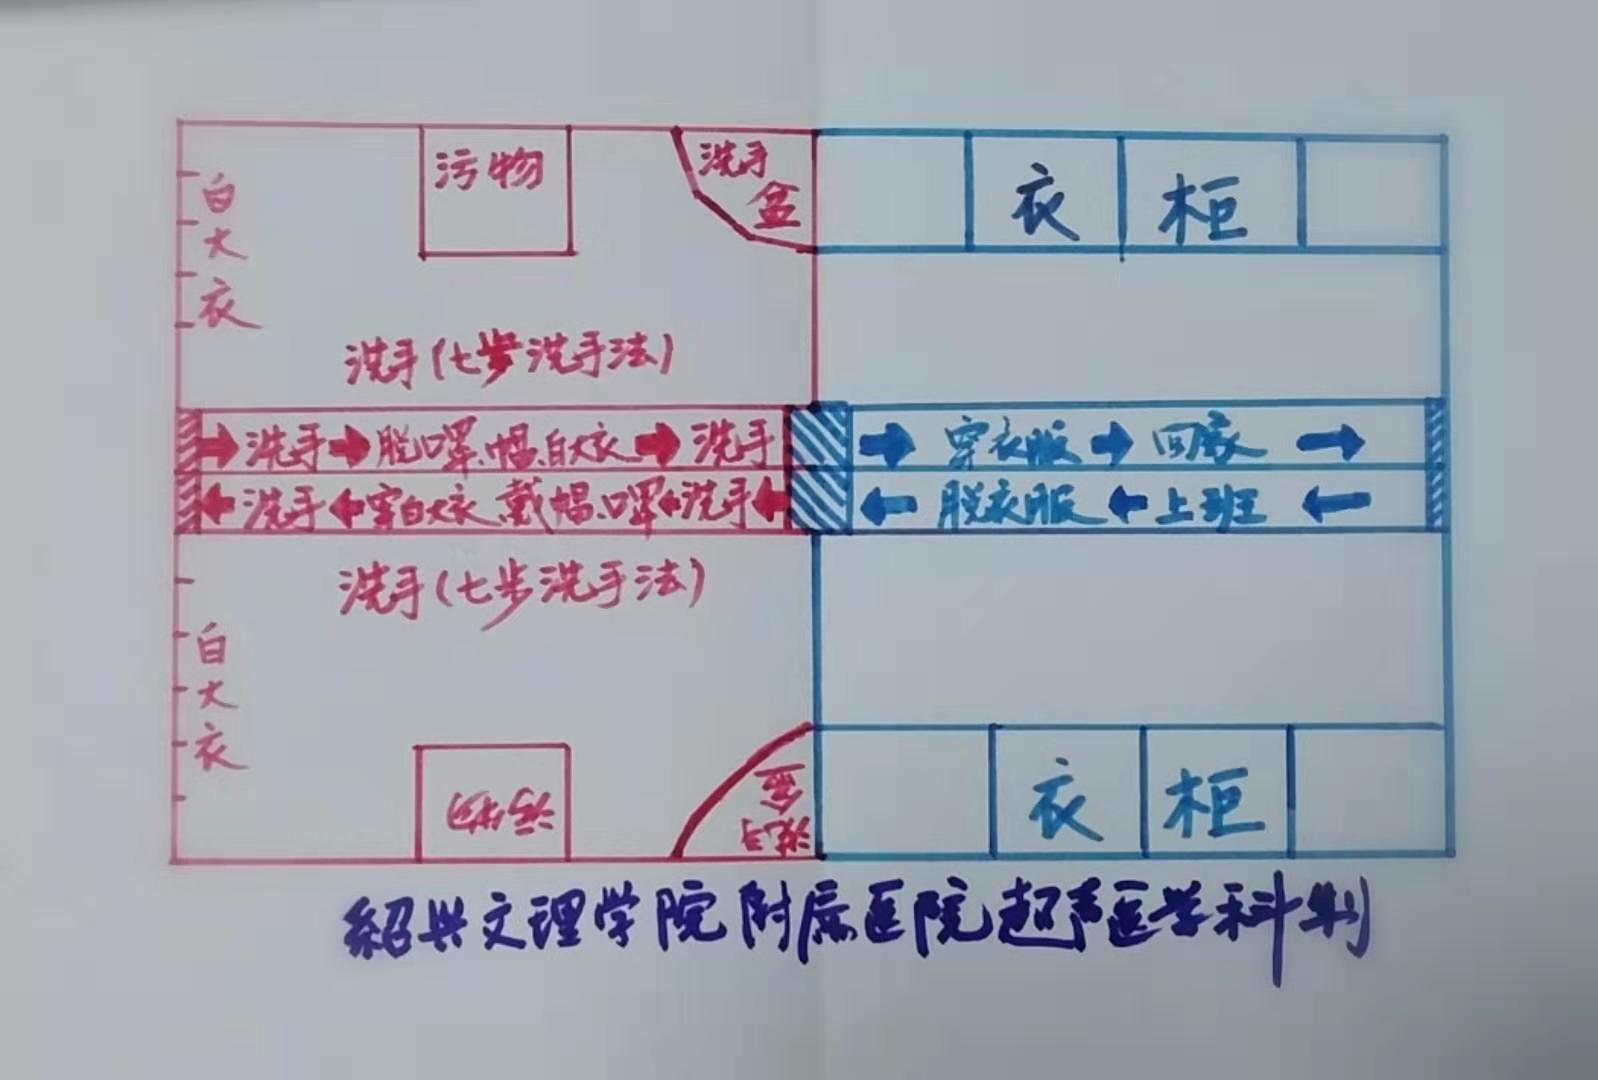 污物
洗手
盆
衣 柜
白
大
衣
洗手(七步洗手法)
洗手 脱口罩、帽、白大衣 洗手 穿衣服 回家
洗手 穿白大衣、戴帽、口罩 洗手 脱衣服 上班
洗手(七步洗手法)
白
大
衣
污物
洗手
盆
衣 柜
绍兴文理学院附属医院超声医学科制